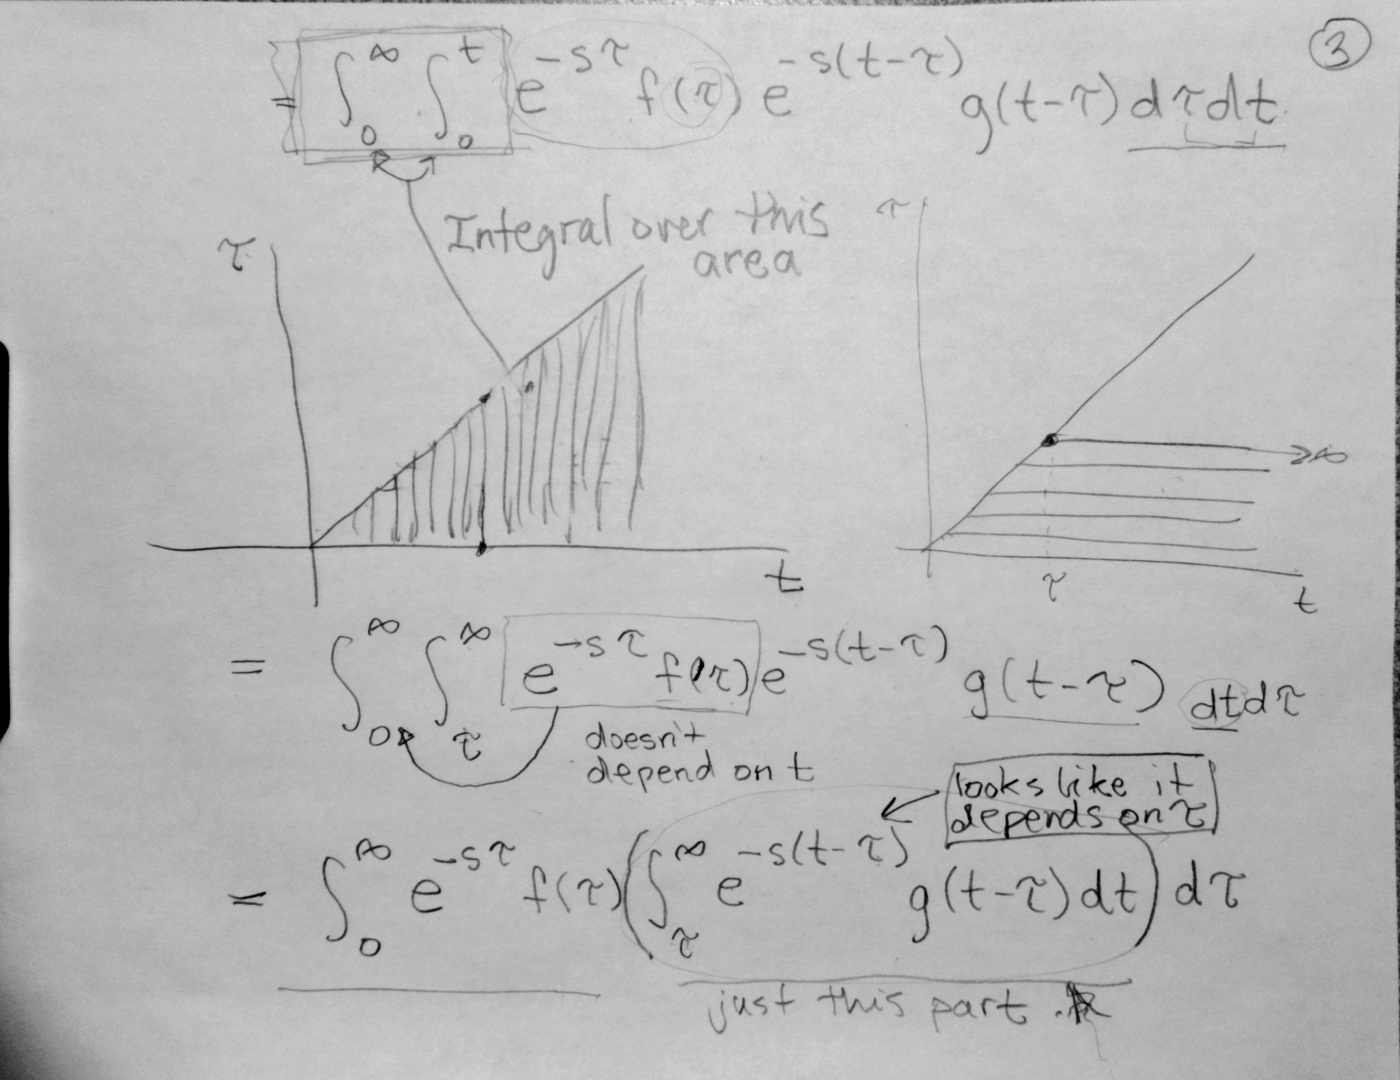 ③
= ∫₀^∞ ∫₀^t e^{-sτ} f(τ) e^{-s(t-τ)} g(t-τ) dτdt
Integral over this
area
τ
t
τ
→∞
τ
t
= ∫₀^∞ ∫_τ^∞ e^{-sτ} f(τ) e^{-s(t-τ)} g(t-τ) dtdτ
doesn't
depend on t
looks like it
depends on τ
= ∫₀^∞ e^{-sτ} f(τ) (∫_τ^∞ e^{-s(t-τ)} g(t-τ) dt) dτ
just this part.